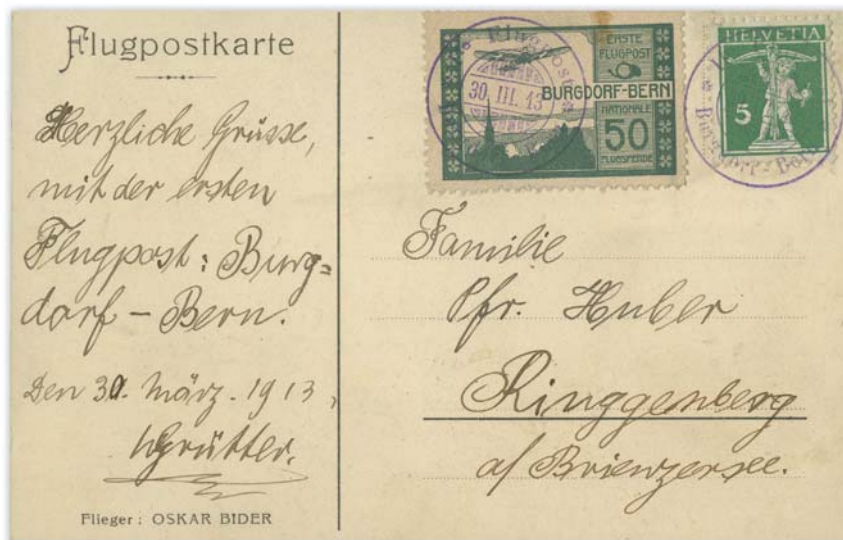 Flugpostkarte
Herzliche Grüsse,
mit der ersten
Flugpost: Burg=
dorf – Bern.
Den 30. März. 1913,
WGrütter.
Flieger: OSKAR BIDER
ERSTE
FLUGPOST
BURGDORF-BERN
NATIONALE
50
FLUGSPENDE
Flugpost
30. III. 13
HELVETIA
5
Burgdorf-Bern
Familie
Pfr. Huber
Ringgenberg
a/ Brienzersee.